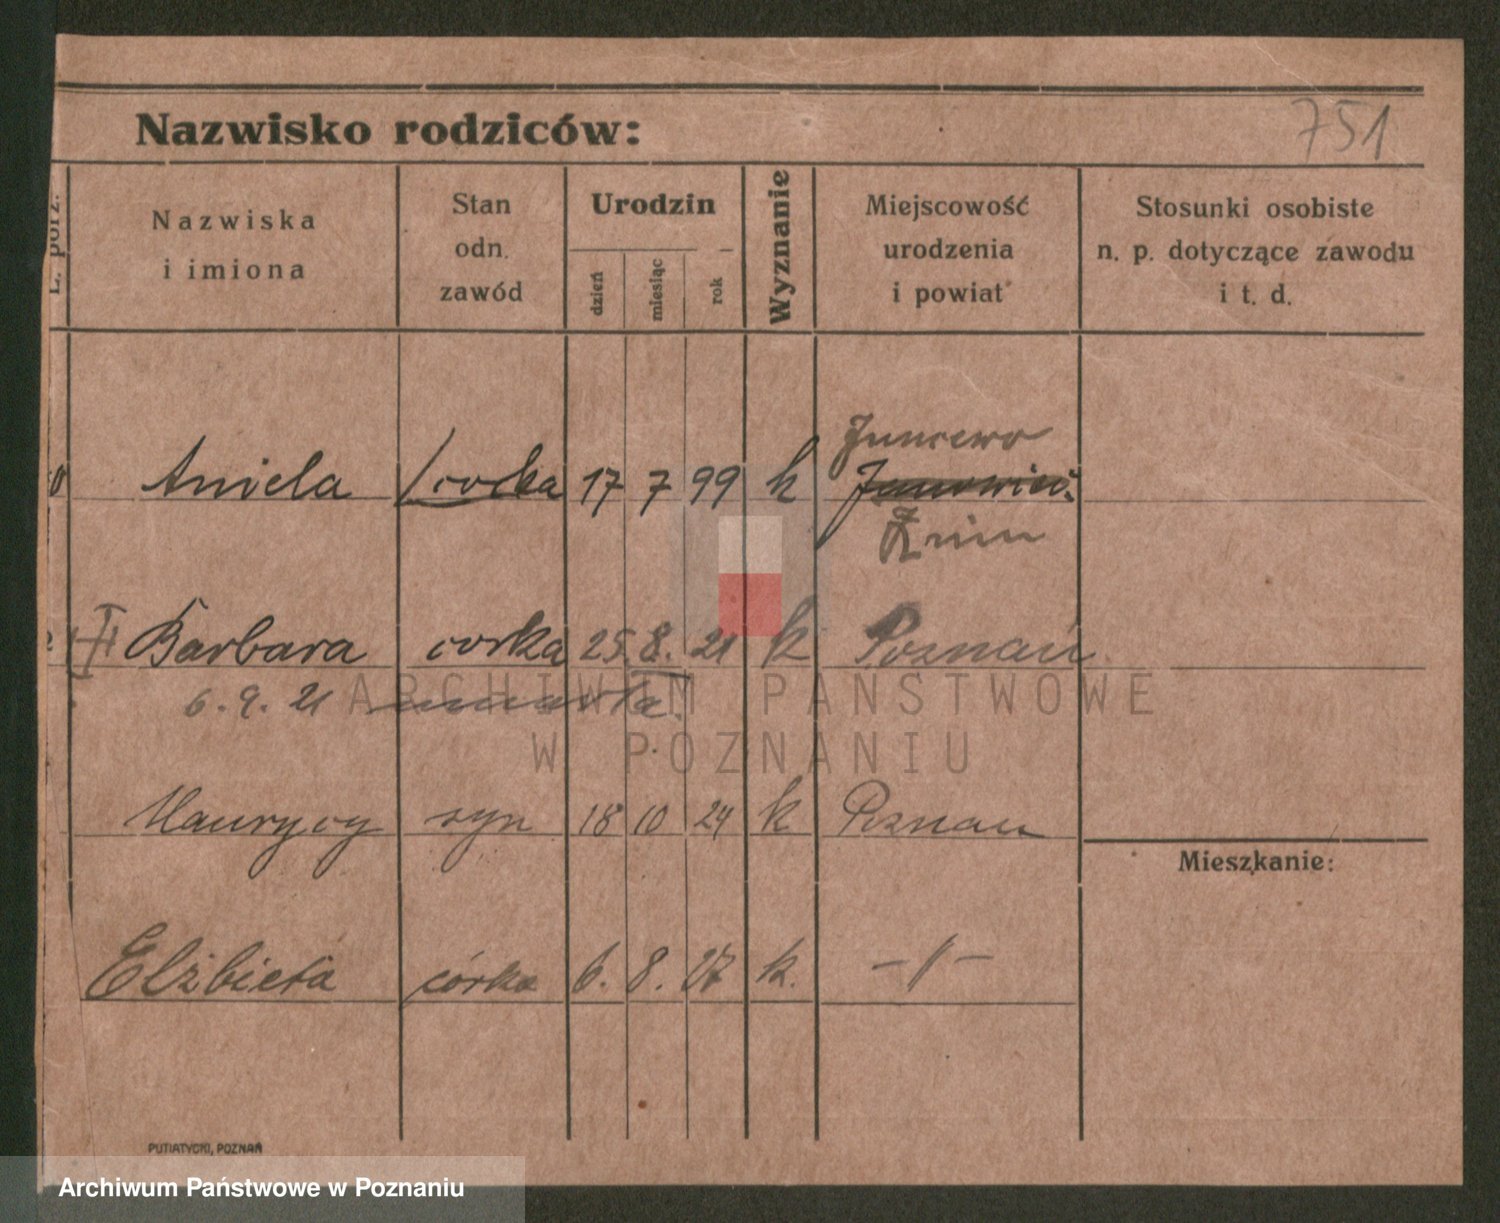 751
Nazwisko rodziców:
L. porz.
Nazwiska
i imiona
Stan
odn.
zawód
Urodzin
dzień
miesiąc
rok
Wyznanie
Miejscowość
urodzenia
i powiat
Stosunki osobiste
n. p. dotyczące zawodu
i t. d.
Juncewo
8 Aniela corka 17 7 99 k Janowiec
Żnin
Barbara corka 25. 8. 21 k Poznań
6. 9. 21 umarła.
ARCHIWUM PAŃSTWOWE
W POZNANIU
Maurycy syn 18 10 24 k Poznań
Mieszkanie:
Elżbieta córka 6. 8. 27 k. -//-
PUTIATYCKI, POZNAŃ
Archiwum Państwowe w Poznaniu